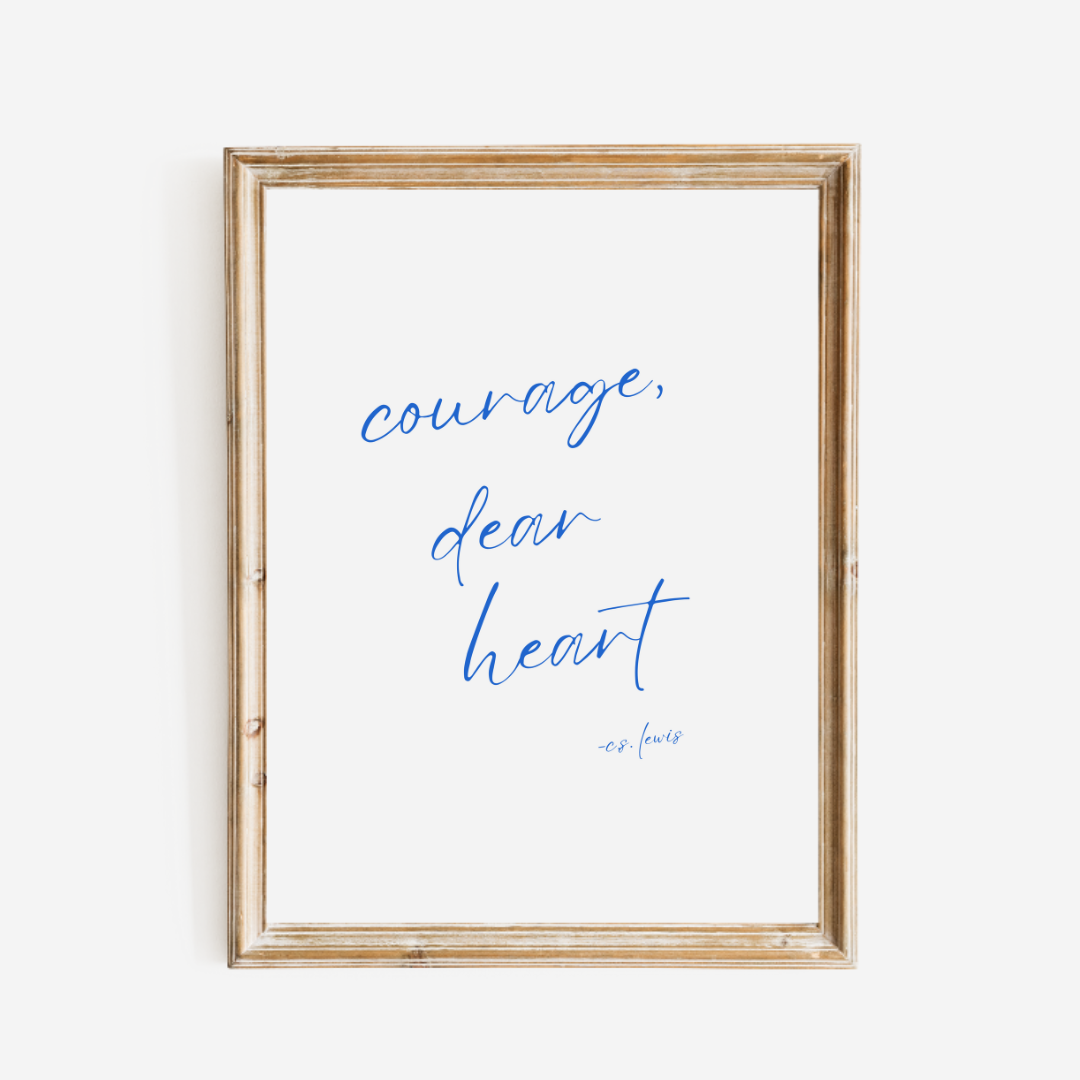 courage,
dear
heart
-cs. lewis